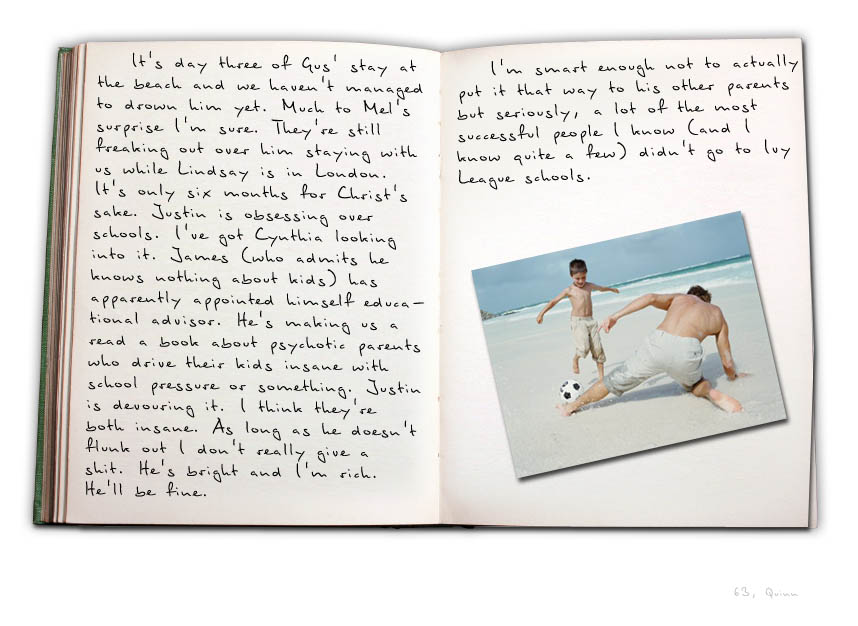 It's day three of Gus' stay at
the beach and we haven't managed
to drown him yet. Much to Mel's
surprise I'm sure. They're still
freaking out over him staying with
us while Lindsay is in London.
It's only six months for Christ's
sake. Justin is obsessing over
schools. I've got Cynthia looking
into it. James (who admits he
knows nothing about kids) has
apparently appointed himself educa-
tional advisor. He's making us a
read a book about psychotic parents
who drive their kids insane with
school pressure or something. Justin
is devouring it. I think they're
both insane. As long as he doesn't
flunk out I don't really give a
shit. He's bright and I'm rich.
He'll be fine.
I'm smart enough not to actually
put it that way to his other parents
but seriously, a lot of the most
successful people I know (and I
know quite a few) didn't go to Ivy
League schools.
63, Quinn